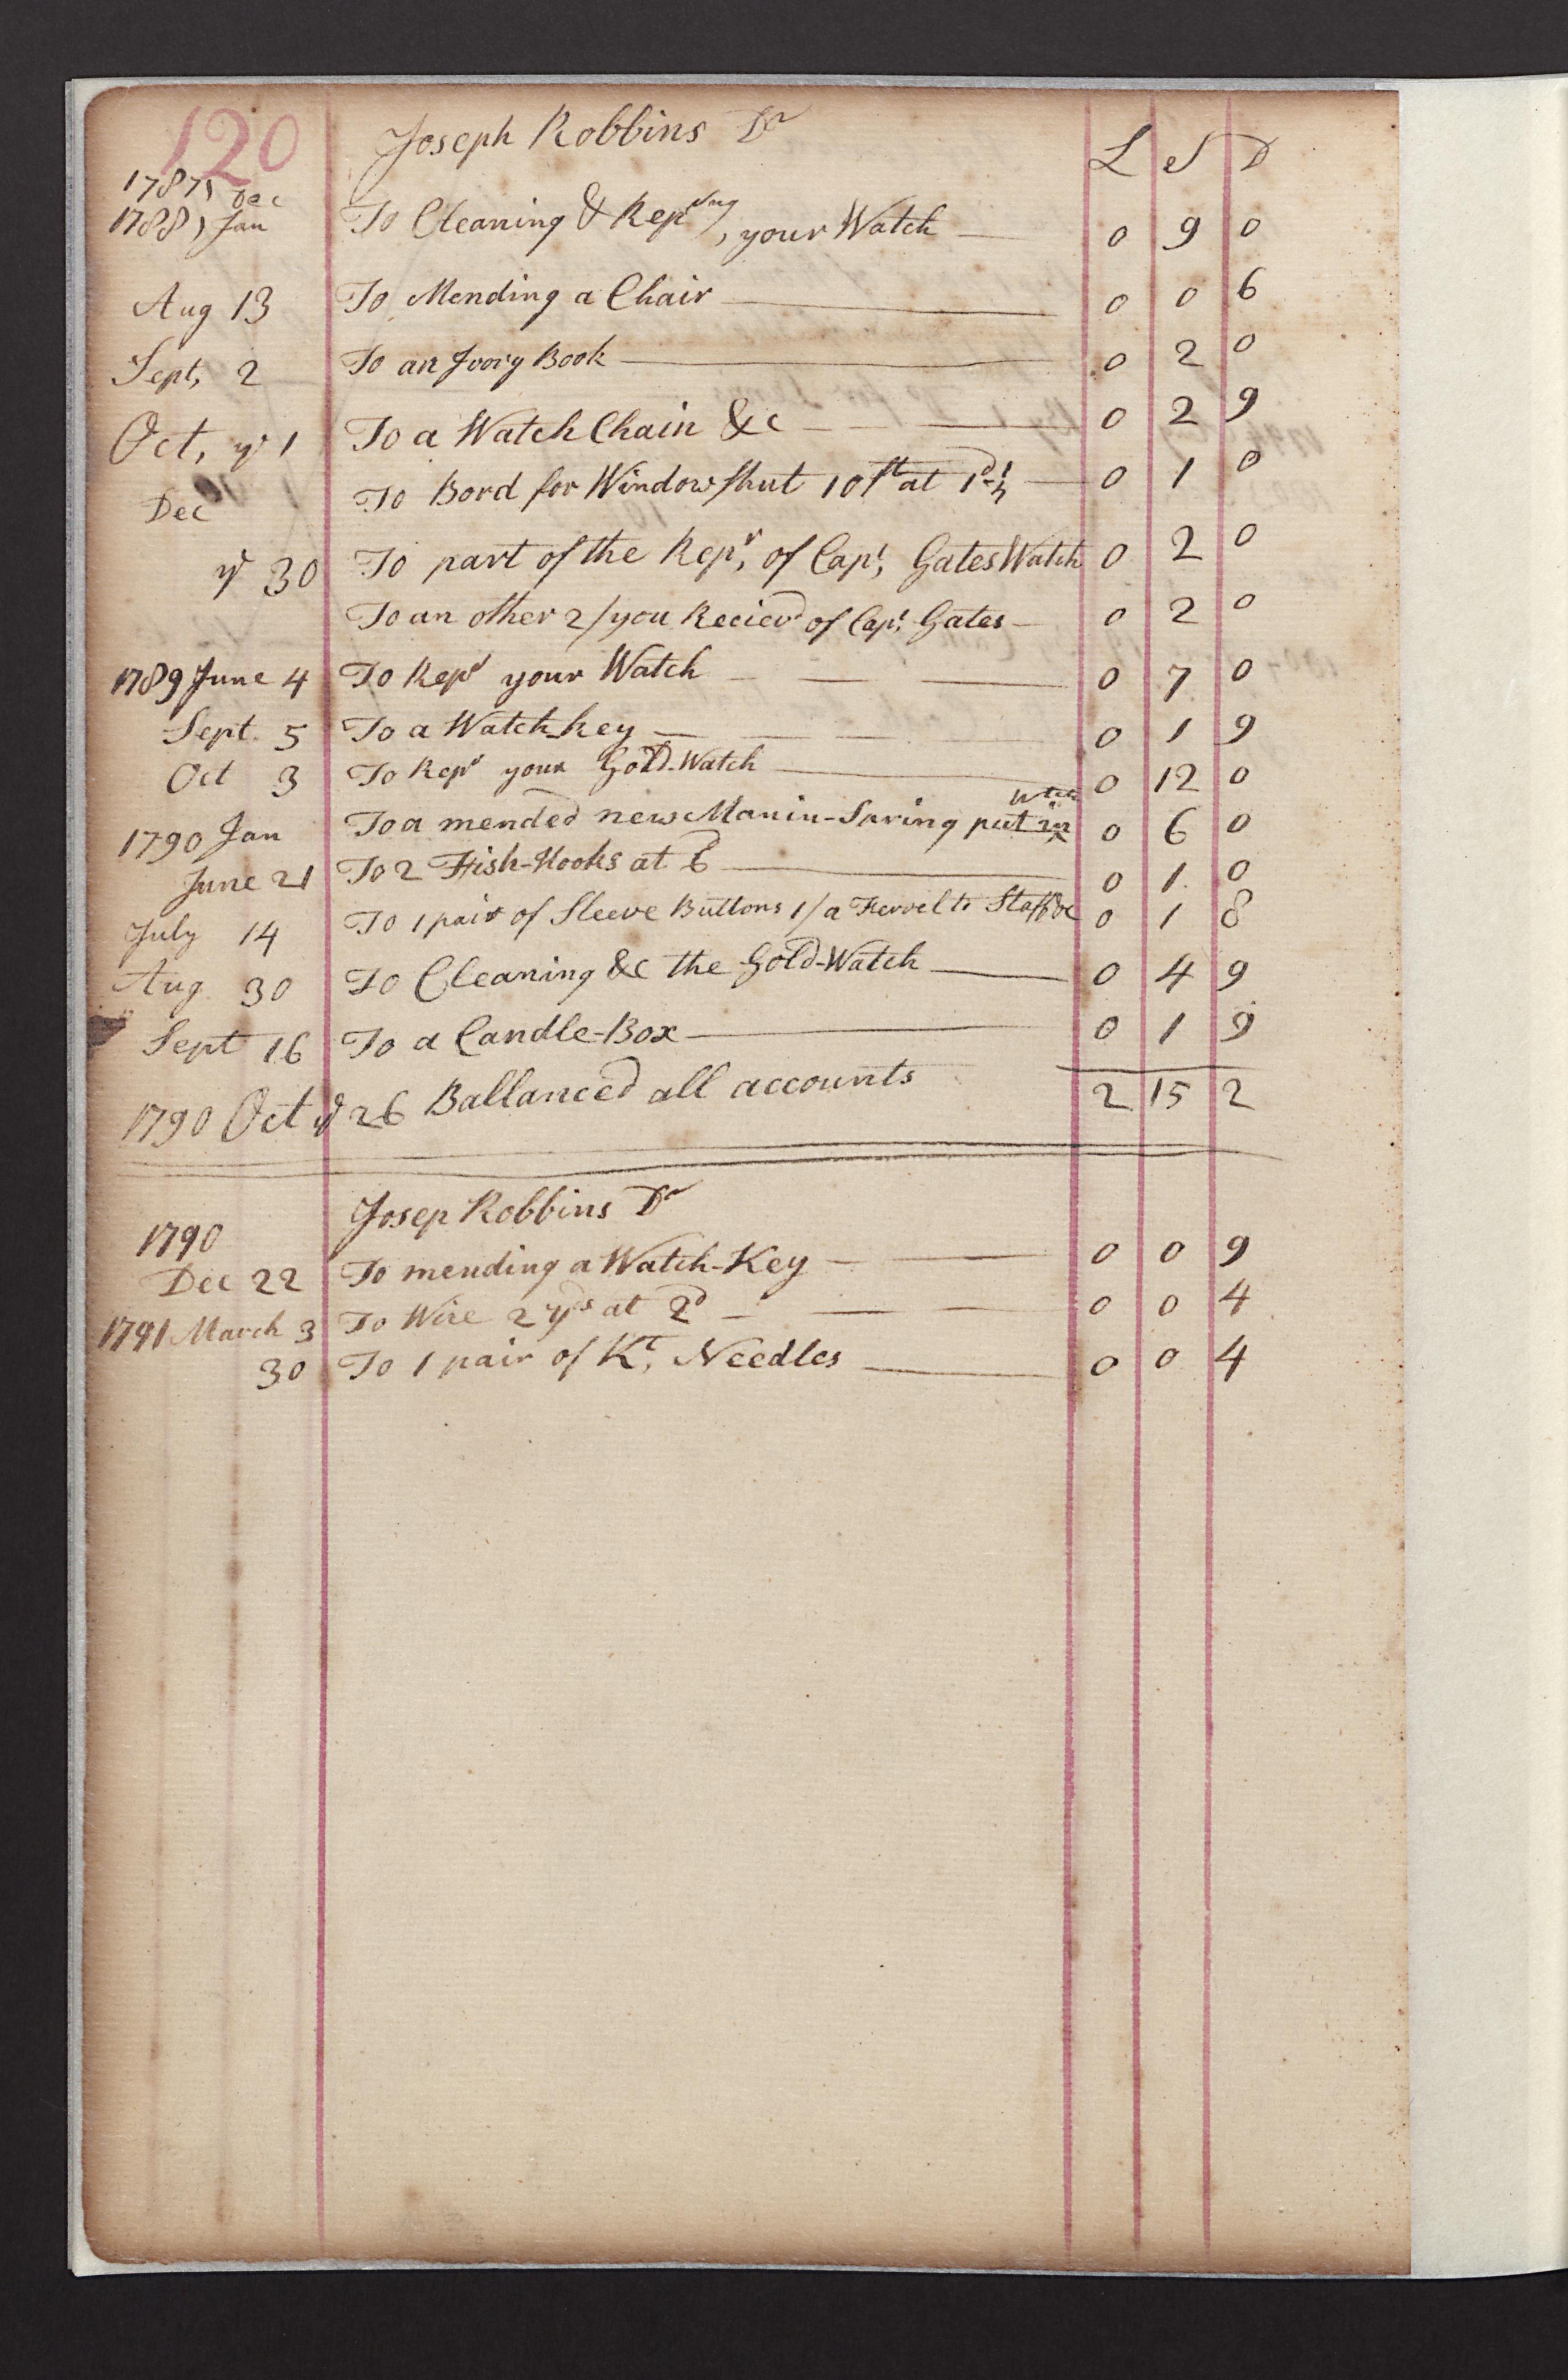 120 Joseph Robbins Dr L S D
1787, Dec
1788, Jan To Cleaning & Reping, your Watch 0 9 0
Aug 13 To Mending a Chair 0 0 6
Sept, 2 To an Ivory Book 0 2 0
Oct, ye 1 To a Watch Chain &c 0 2 9
Dec To Bord for Window shut 10 ft at 1d 0 1 0
ye 30 To part of the Repr, of Capt, Gates Watch 0 2 0
To an other 2/ you Recievd of Capt, Gates 0 2 0
1789 June 4 To Repr your Watch 0 7 0
Sept. 5 To a Watch-key 0 1 9
Oct 3 To Repr your Gold-Watch 0 12 0
1790 Jan To a mended new Manin-Spring put in 0 6 0
June 21 To 2 Fish-Hooks at 6 0 1 0
July 14 To 1 pair of Sleeve Buttons 1/ a Ferrel to Staff &c 0 1 8
Aug 30 To Cleaning &c the Gold-Watch 0 4 9
Sept 16 To a Candle-Box 0 1 9
1790 Oct ye 26 Ballanced all accounts 2 15 2
1790 Josep Robbins Dr
Dec 22 To mending a Watch-Key 0 0 9
1791 March 3 To Wire 2 yds at 2d 0 0 4
30 To 1 pair of Kt, Needles 0 0 4